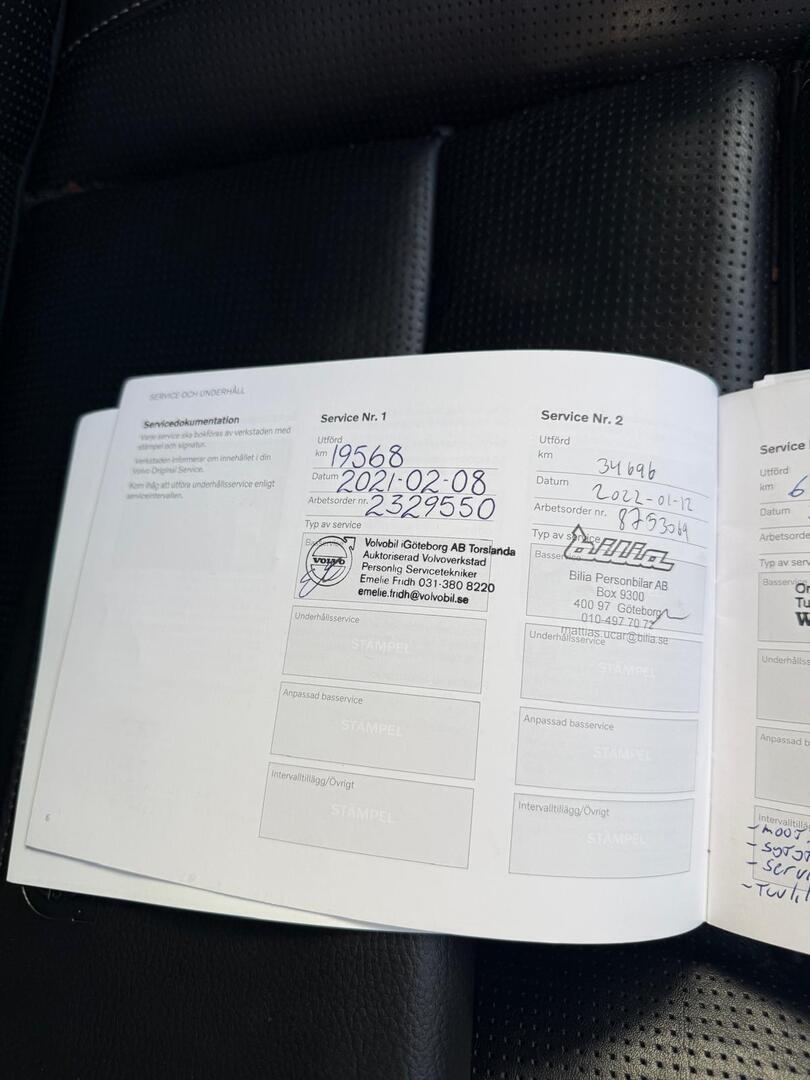 SERVICE OCH UNDERHÅLL
Servicedokumentation
Varje service ska bokföras av verkstaden med
stämpel och signatur.
Verkstaden informerar om innehållet i din
Volvo Original Service.
Kom ihåg att utföra underhållsservice enligt
serviceintervallen.
6
Service Nr. 1
Utförd
km 19568
Datum 2021-02-08
Arbetsorder nr. 2329550
Typ av service
VOLVO
Volvobil i Göteborg AB Torslanda
Auktoriserad Volvoverkstad
Personlig Servicetekniker
Emelie Fridh 031-380 8220
emelie.fridh@volvobil.se
Underhållsservice
STÄMPEL
Anpassad basservice
STÄMPEL
Intervalltillägg/Övrigt
STÄMPEL
Service Nr. 2
Utförd
km 34696
Datum 2022-01-12
Arbetsorder nr. 8753069
Typ av service
Basservice
bilia
Bilia Personbilar AB
Box 9300
400 97 Göteborg
010-497 70 72
mattias.ucar@bilia.se
Underhållsservice
STÄMPEL
Anpassad basservice
STÄMPEL
Intervalltillägg/Övrigt
STÄMPEL
Service
Utförd
km 6
Datum
Arbetsorder
Typ av serv
Basservice
Underhålls
Anpassad b
Intervalltillä